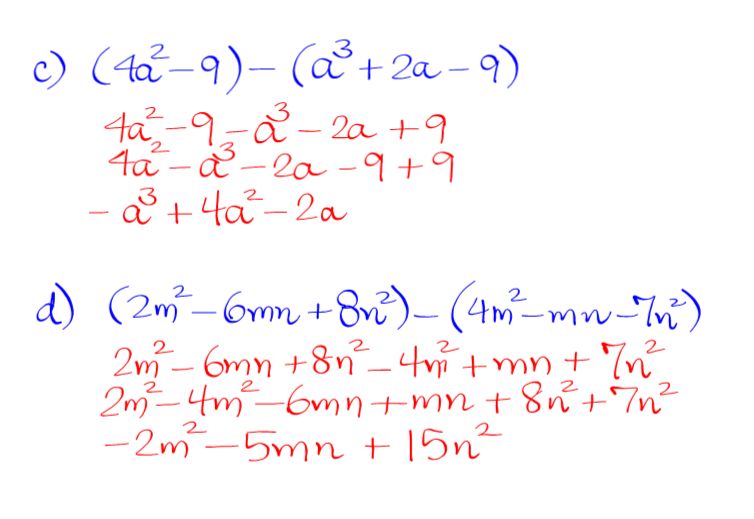 c) (4a²-9)-(a³+2a-9)
4a²-9-a³-2a+9
4a²-a³-2a-9+9
-a³+4a²-2a
d) (2m²-6mn+8n²)-(4m²-mn-7n²)
2m²-6mn+8n²-4m²+mn+7n²
2m²-4m²-6mn+mn+8n²+7n²
-2m²-5mn+15n²